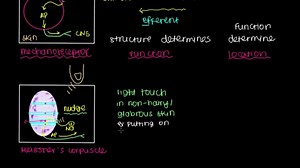 AP
CNS
efferent
function
structure determines
determine
mechanoreceptor
function
location
nudge
light touch
in non-hairy/
glabrous skin
putting on
Meissner's corpuscle